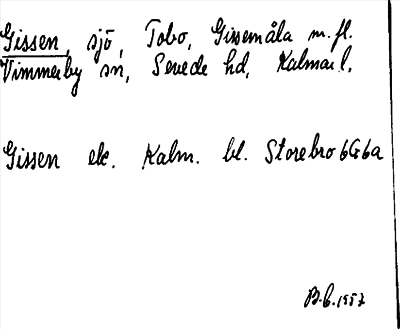 Gissen, sjö, Tobo, Gissemåla m.fl.
Vimmerby sn, Sevede hd, Kalmar l.
Gissen ek. Kalm. bl. Storebro 6G6a
B.C. 1957